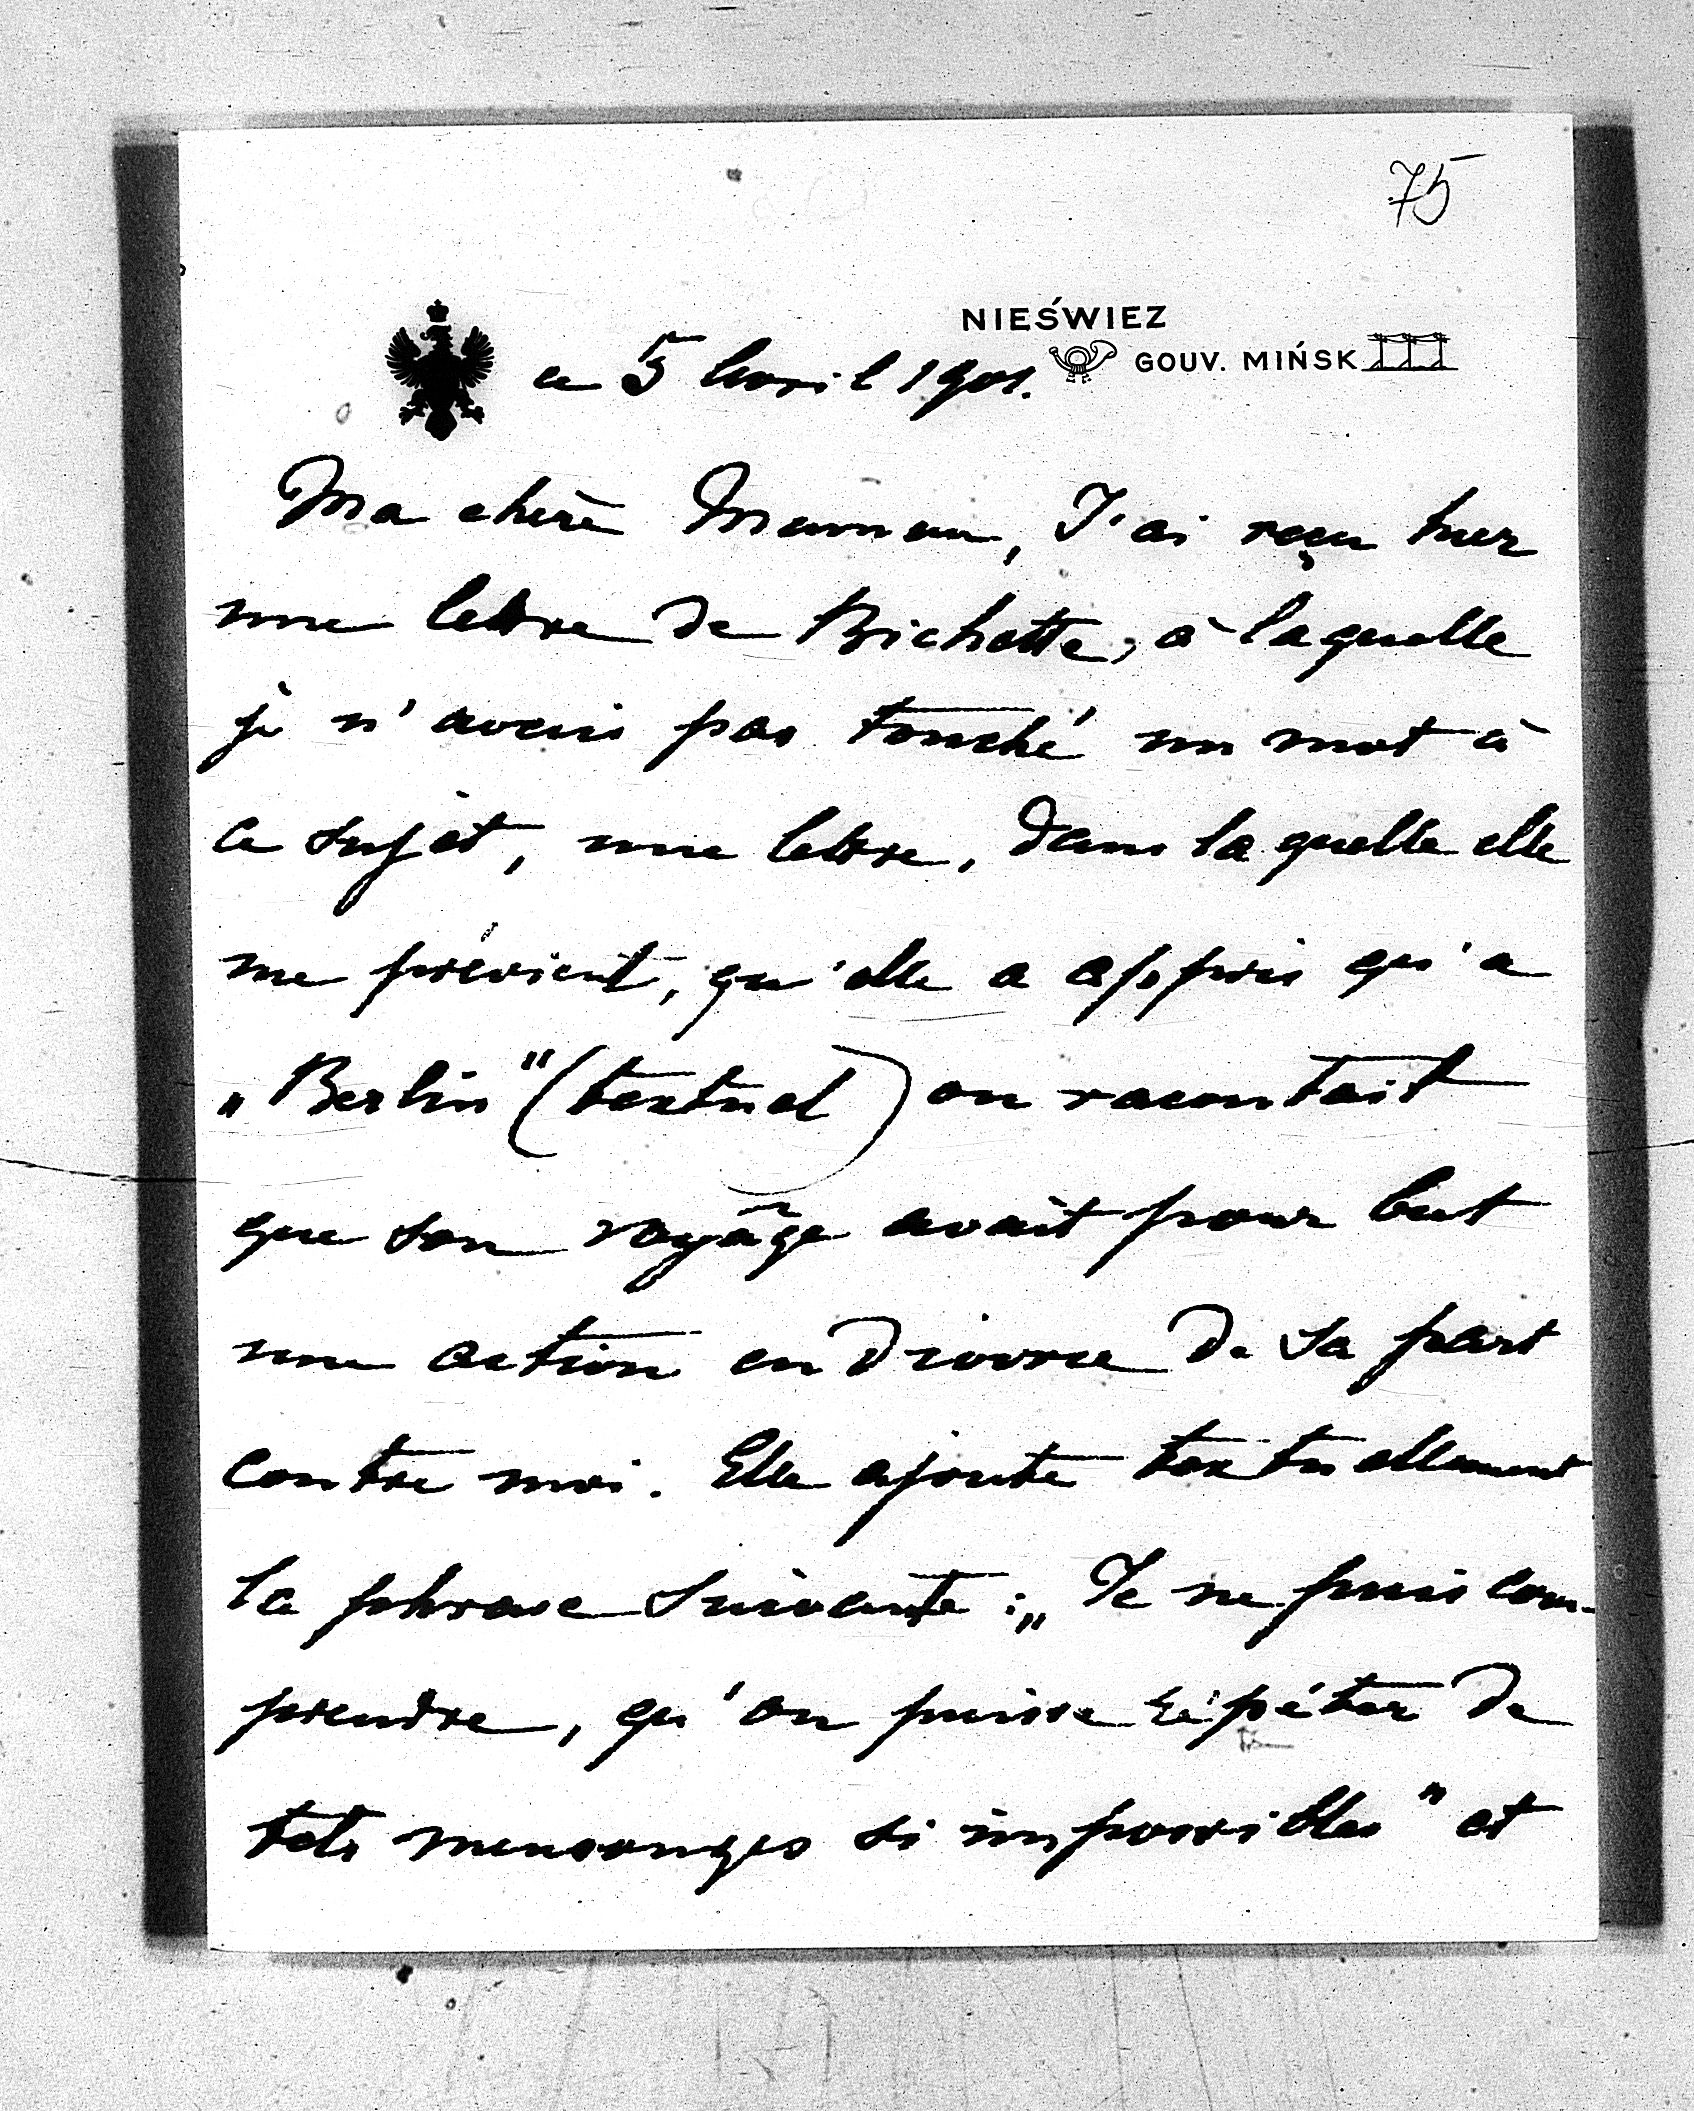 75
NIEŚWIEZ
GOUV. MIŃSK
ce 5 Avril 1901.
Ma chère Maman, J'ai reçu hier
une lettre de Bichette, à laquelle
je n'avais pas touché un mot à
ce sujet, une lettre, dans laquelle elle
me prévient, qu'elle a appris qu'a
„Berlin" (textuel) on racontait
que son voyage avait pour but
une action en divorce de sa part
contre moi. Elle ajoute textuellement
la phrase suivante : „Je ne puis com-
prendre, qu'on puisse répéter de
tels mensonges si impossibles" et